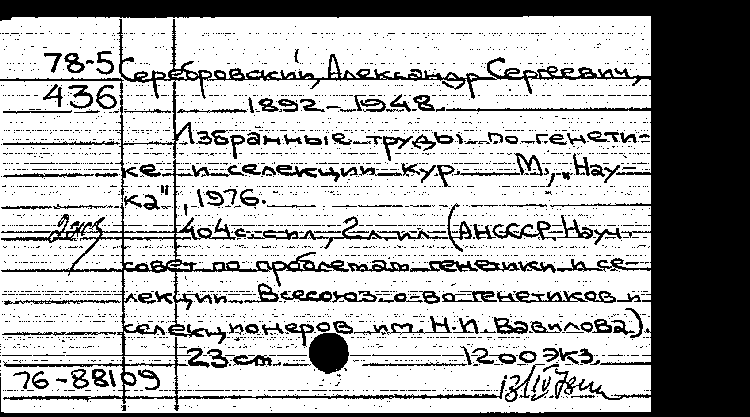 78-5 Серебровский, Александр Сергеевич,
436 1892-1948.
Избранные труды по генети-
ке и селекции кур. М., "Нау-
ка", 1976.
2экз 404 с. с ил., 2 л. ил. (АН СССР. Науч.
совет по проблемам генетики и се-
лекции. Всесоюз. о-во генетиков и
селекционеров им. Н.И. Вавилова).
23 см. 1200 экз.
76-88109